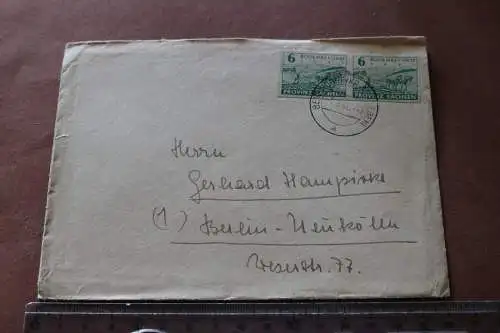 6 BODENREFORM 6 BODENREFORM
PROVINZ SACHSEN PROVINZ SACHSEN
Herrn
Gerhard
(1) Berlin-Neukölln
Weserstr. 77.